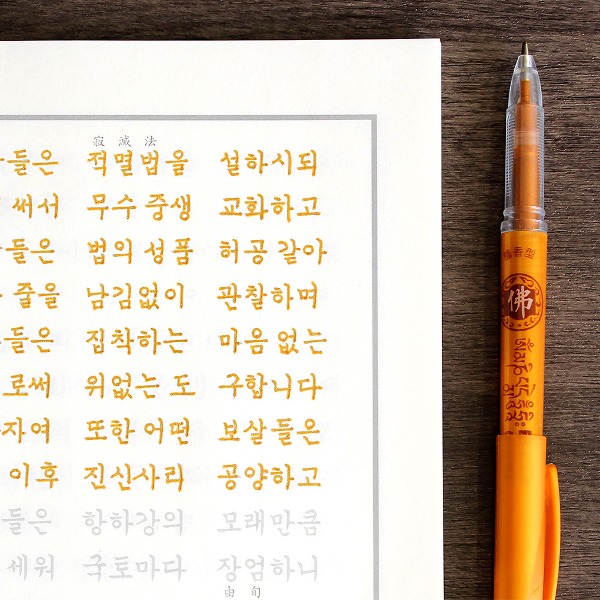 寂滅法
들은 적멸법을 설하시되
써서 무수 중생 교화하고
들은 법의 성품 허공 같아
줄을 남김없이 관찰하며
들은 집착하는 마음 없는
로써 위없는 도 구합니다
자여 또한 어떤 보살들은
이후 진신사리 공양하고
들은 항하강의 모래만큼
세워 국토마다 장엄하니
由旬
香型
佛